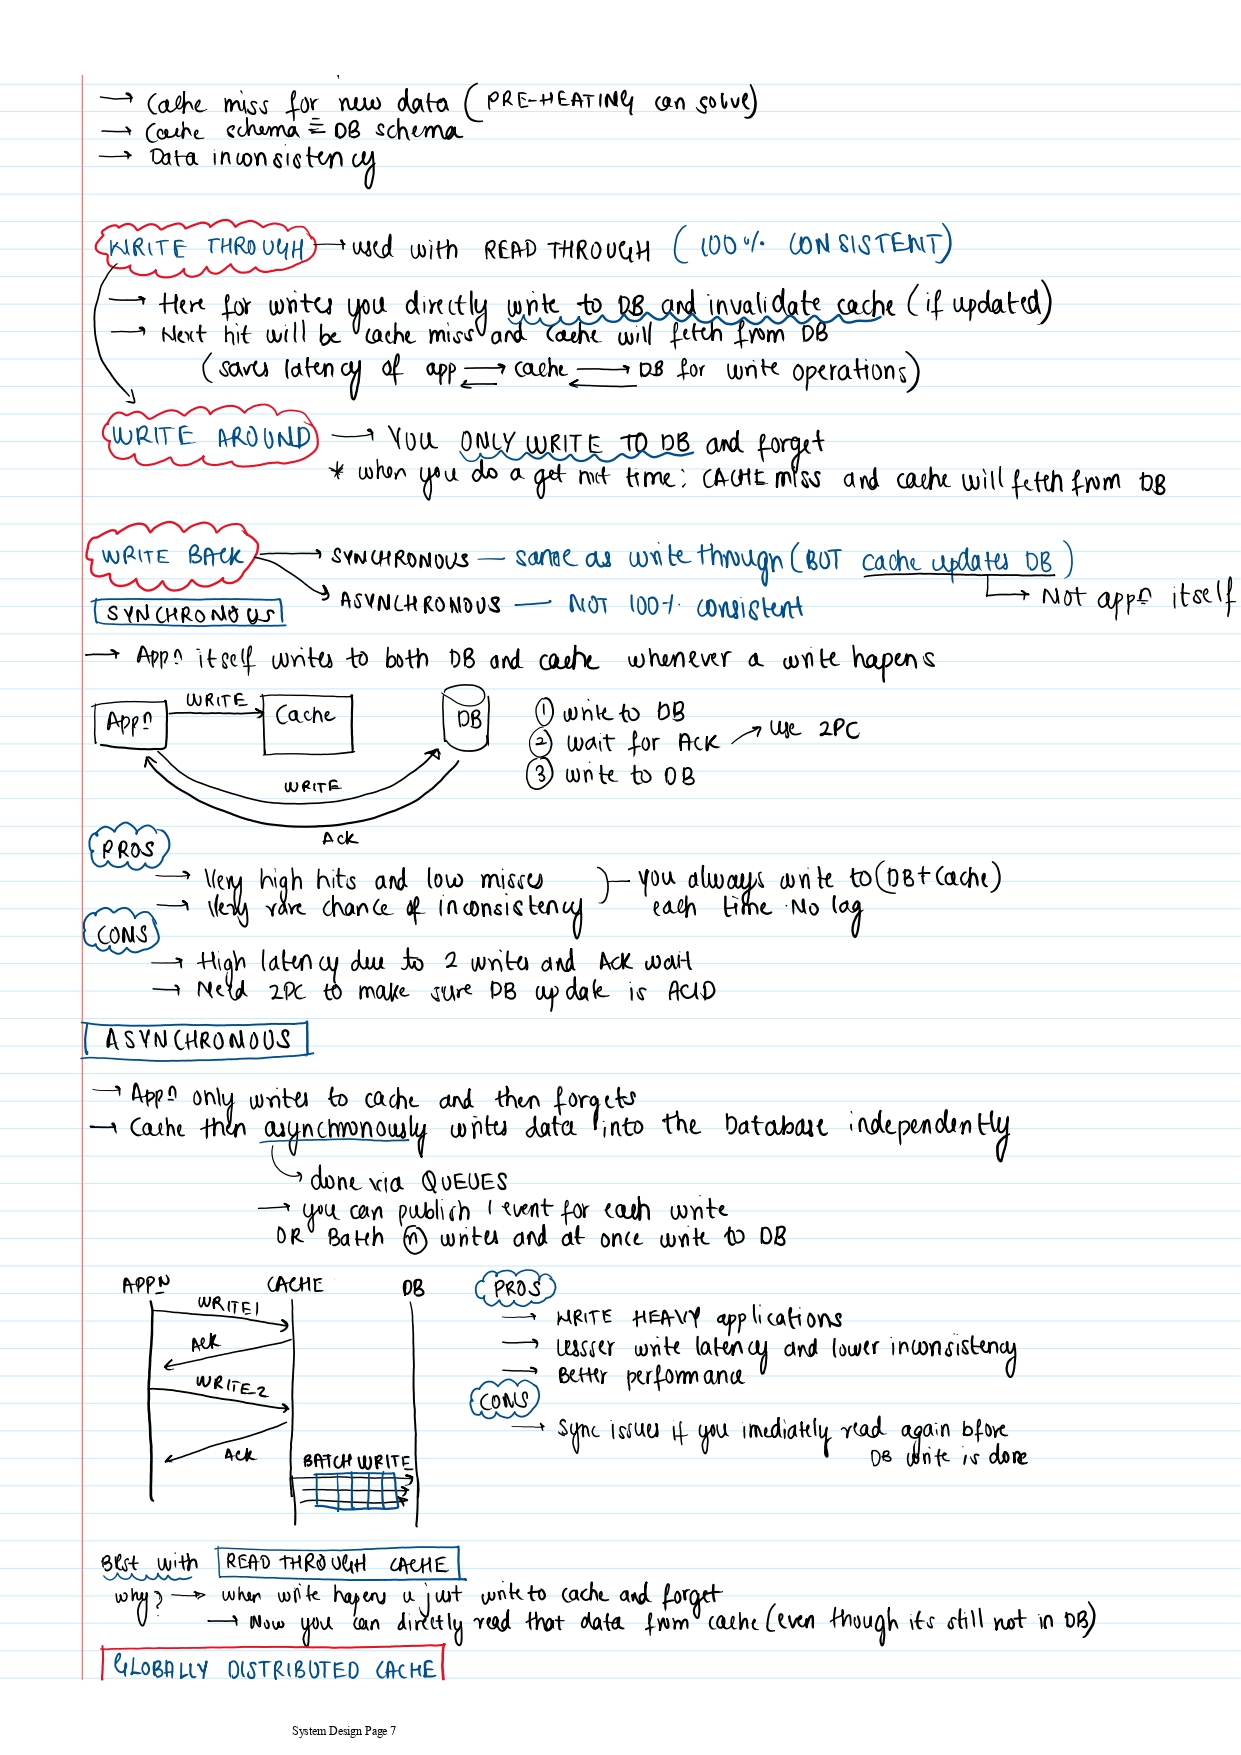 → Cache miss for new data (PRE-HEATING can solve)
→ Cache schema ≡ DB schema
→ Data inconsistency
WRITE THROUGH → used with READ THROUGH (100% CONSISTENT)
→ Here for writes you directly write to DB and invalidate cache (if updated)
→ Next hit will be cache miss and cache will fetch from DB
(saves latency of app ⇄ cache ⇄ DB for write operations)
WRITE AROUND → YOU ONLY WRITE TO DB and forget
* when you do a get nxt time: CACHE miss and cache will fetch from DB
WRITE BACK → SYNCHRONOUS — same as write through (BUT cache updates DB)
→ Not appn itself
→ ASYNCHRONOUS — NOT 100% consistent
SYNCHRONOUS
→ Appn itself writes to both DB and cache whenever a write hapens
Appn WRITE Cache DB
WRITE
Ack
① write to DB
② wait for ACK → use 2PC
③ write to DB
PROS
→ Very high hits and low misses
→ Very rare chance of inconsistency
you always write to (DB+Cache)
each time. No lag
CONS
→ High latency due to 2 writes and Ack wait
→ Need 2PC to make sure DB update is ACID
ASYNCHRONOUS
→ Appn only writes to cache and then forgets
→ Cache then asynchronously writes data into the Database independently
→ done via QUEUES
→ you can publish 1 event for each write
OR Batch ⓝ writes and at once write to DB
APPN CACHE DB
WRITE1
Ack
WRITE2
Ack
BATCH WRITE
PROS
→ WRITE HEAVY applications
→ Lessser write latency and lower inconsistency
→ Better performance
CONS
→ Sync issues if you imediately read again bfore
DB write is done
Best with READ THROUGH CACHE
why? → when write hapens u just write to cache and forget
→ Now you can directly read that data from cache (even though its still not in DB)
GLOBALLY DISTRIBUTED CACHE
System Design Page 7